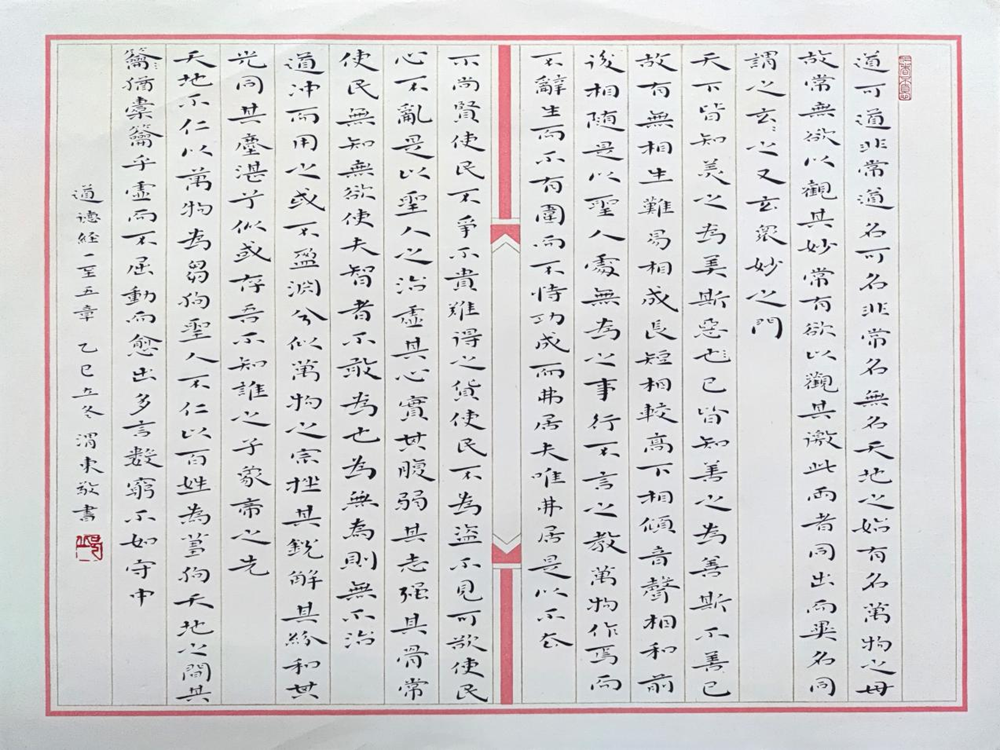 道可道非常道名可名非常名無名天地之始有名萬物之母
故常無欲以觀其妙常有欲以觀其徼此兩者同出而異名同
謂之玄〻之又玄衆妙之門
天下皆知美之為美斯惡也已皆知善之為善斯不善已
故有無相生難易相成長短相較高下相傾音聲相和前
後相随是以聖人處無為之事行不言之教萬物作焉而
不辭生而不有圍而不恃功成而弗居夫唯弗居是以不去
不尚賢使民不爭不貴難得之貨使民不為盜不見可欲使民
心不亂是以聖人之治虛其心實其腹弱其志强其骨常
使民無知無欲使夫智者不敢為也為無為則無不治
道沖而用之或不盈淵兮似萬物之宗挫其銳解其紛和其
光同其塵湛兮似或存吾不知誰之子象帝之先
天地不仁以萬物為芻狗聖人不仁以百姓為芻狗天地之間其
籥猶橐籥乎虛而不屈動而愈出多言數窮不如守中
道德経一至五章 乙巳立冬 渭東敬書